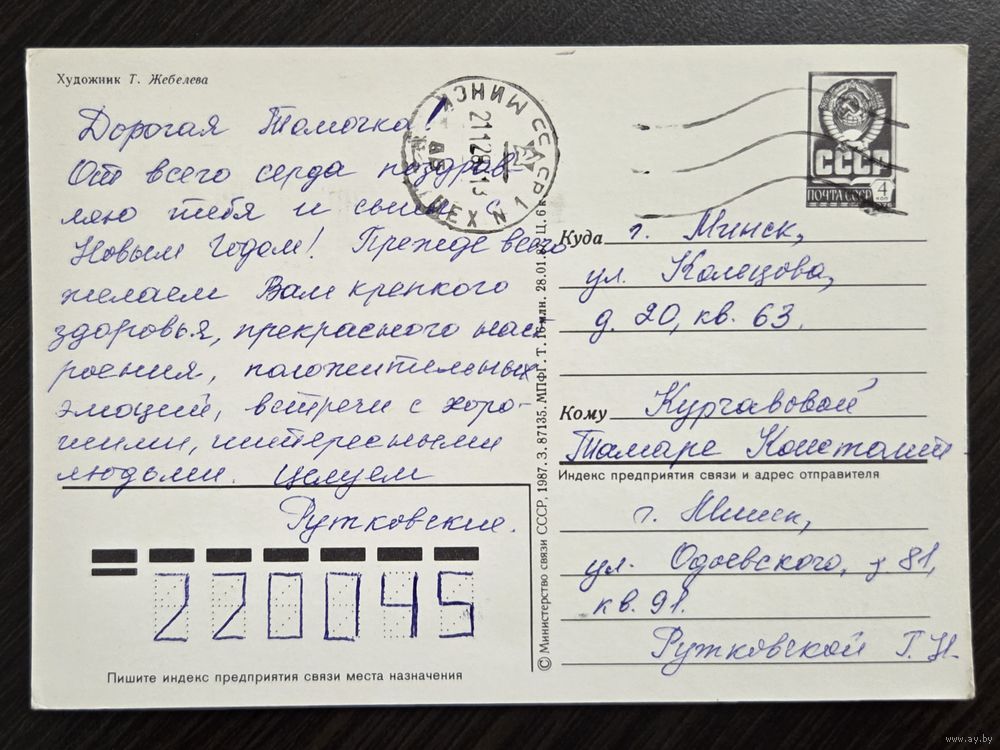 Художник Т. Жебелева
Дорогая Томочка!
От всего серда поздрав
ляю тебя и сына с
Новым Годом! Прежде всего
желаем Вам крепкого
здоровья, прекрасного наст
роения, положительных
эмоций, встречи с хоро-
шими, интересными
людьми. Целуем
Рутковские.
220045
Пишите индекс предприятия связи места назначения
МИНСК
СССР
© Министерство связи СССР, 1987. З. 87135. МПФГ. Т. 16 млн. 28.01.87. Ц. 6 к.
СССР
ПОЧТА СССР
4
КОП
Куда г. Минск,
ул.
д. 20, кв. 63.
Кому Курчавовой
Тамаре Констант
Индекс предприятия связи и адрес отправителя
г. Минск,
ул. Одоевского, д. 81,
кв. 91.
Рутковской Г. Н.
www.ay.by